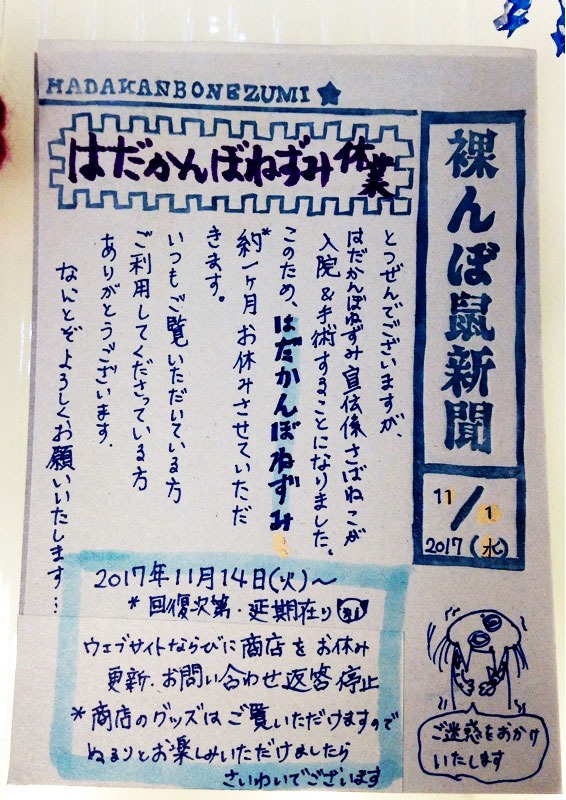 HADAKANBONEZUMI★
裸んぼ鼠新聞
11/1
2017(水)
はだかんぼねずみ休業
とつぜんでございますが、
はだかんぼねずみ宣伝係さばねこが
入院&手術することになりました。
このため、はだかんぼねずみ
約*一ヶ月 お休みさせていただ
きます。
いつもご覧いただいている方
ご利用してくださっている方
ありがとうございます.
なにとぞよろしくお願いいたします…
2017年11月14日(火)~
*回復次第・延期在り
ウェブサイトならびに商店をお休み
更新・お問い合わせ返答 停止
*商店のグッズはご覧いただけますので
ぬるりとお楽しみいただけましたら
さいわいでございます
ご迷惑をおかけ
いたします